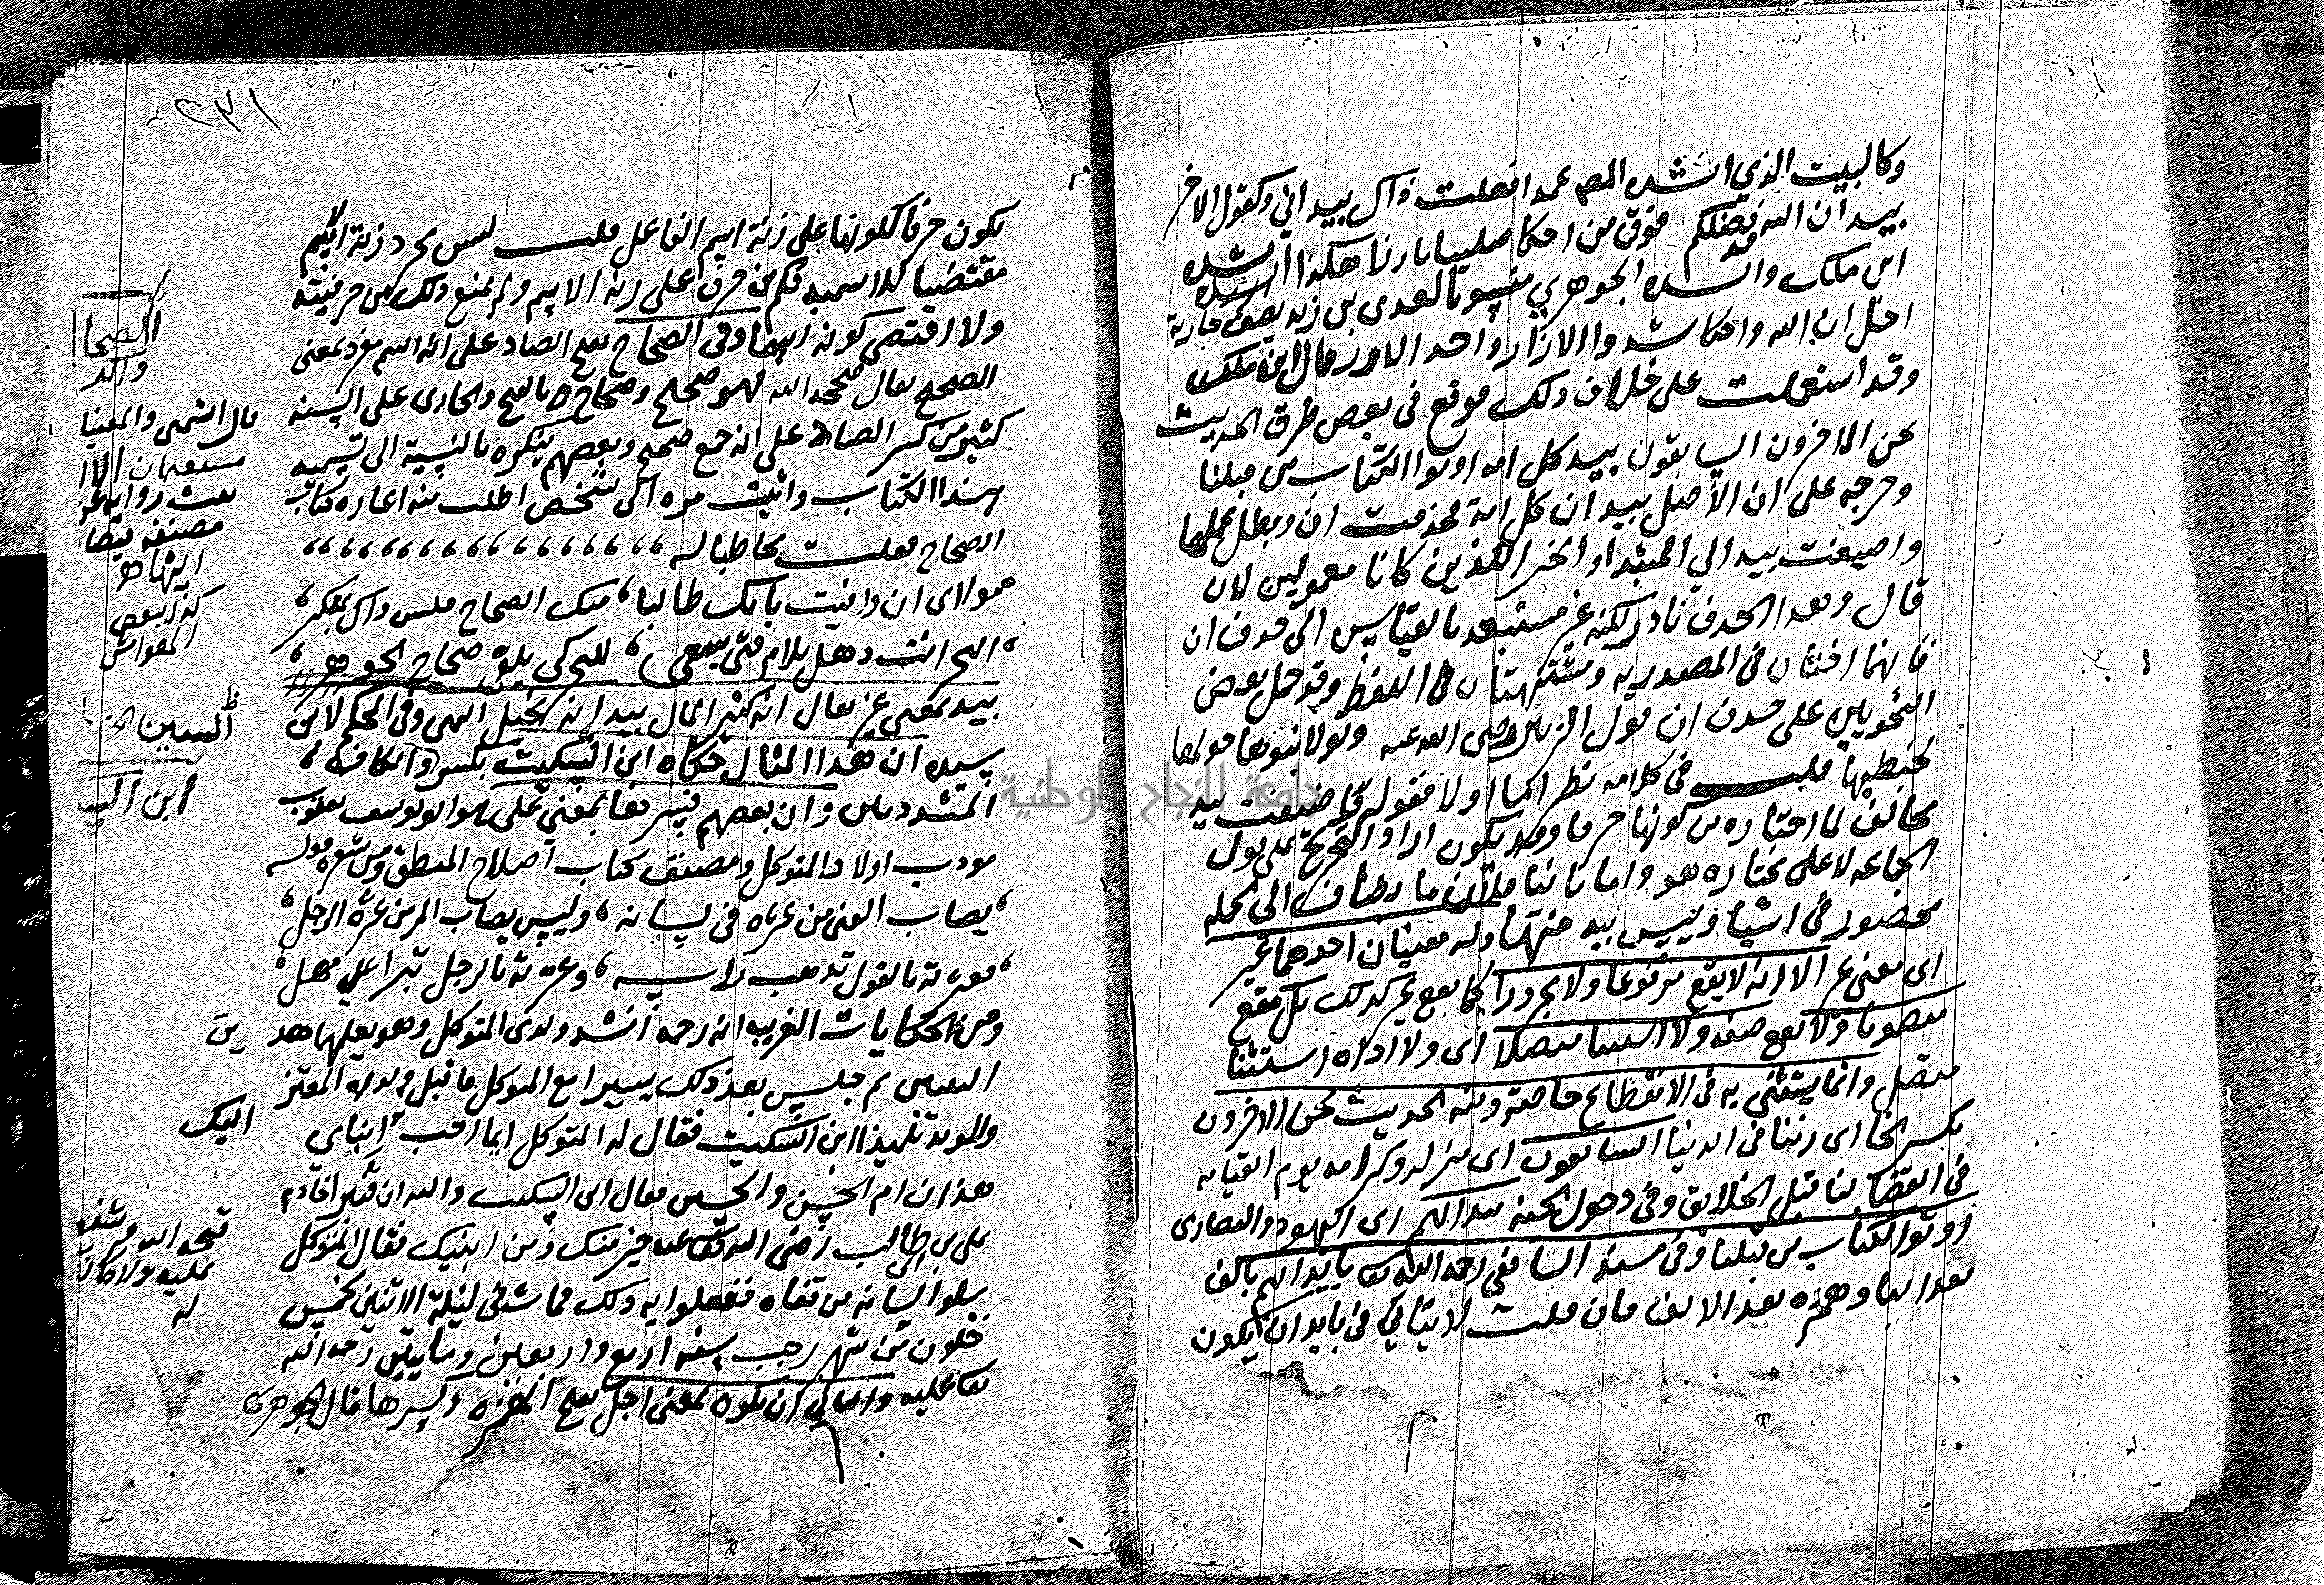 وكالبيت الذي انشده المص عمدا فعلت ذاك بيد اني وكقول الاخر
بيد ان الله قد فضلكم فوق من احكا صلبا بازار هكذا انشده
ابن ملك وانشده الجوهري منسوبا لعدي بن زيد يصف جارية
اجل ان الله واحكا شد والازار واحد الازر قال ابن ملك
وقد استعملت على خلاف ذلك فوقع في بعض طرق الحديث
نحن الاخرون السابقون بيد كل امه اوتوا الكتاب من قبلنا
وخرجه على ان الاصل بيد ان كل امة فحذفت ان وبطل عملها
واضيفت بيد الى المبتدا والخبر اللذين كانا معمولين لان
قال وهذا الحذف نادر لكنه غير مستبعد بالقياس الى حذف ان
فانهما اختان في المصدريه ومشتبهتان في اللفظ وقد حمل بعض
النحويين على حذف ان قول الزبير رضي الله عنه ولولا بنوها حولها
لخبطتها قلت في كلامه نظر اما اولا فقوله فاضيفت بيد
مخالف لما اختاره من كونها حرفا وقد يكون اراد التخريج على قول
الجماعه لا على مختاره هو واما ثانيا فلان ما يضاف الى الجمله
محصور في اشيا وليس بيد منها وله معنيان احدهما غير
اي معنى غير الا انه لا يقع مرفوعا ولا مجرورا كما يقع غير كذلك بل يقع
منصوبا ولا يقع صفه ولا استثنا متصلا اي ولا اداه استثنا
متصل وانما يستثنى به في الانقطاع خاصة ومنه الحديث نحن الاخرون
بكسر الخا اي زمنا في الدنيا السابقون اي منزله وكرامه يوم القيامه
في القضا لنا قبل الخلايق وفي دخول الجنه بيد انهم اي اليهود والنصارى
اوتوا الكتاب من قبلنا وفي مسند الشافعي رحمه الله تعا بايد انهم بالف
بعد البا وهمزه بعد الالف فان قلت لا يتاتى في بايد ان يكون
٢٣١
يكون حرفا لكونها على زنة اسم الفاعل قلت ليس مجرد زنة الاسم
مقتضيا للاسميه فكم من حرف على زنه الاسم ولم يمنع ذلك من حرفيته
ولا اقتضى كونه اسما وفي الصحاح بفتح الصاد على انه اسم مفرد بمعنى
الصحيح يقال صححه الله فهو صحيح وصحاح بالفتح والجاري على السنه
كثير من كسر الصاد على انه جمع صحيح وبعضهم ينكره بالنسبة الى تسميه
هذا الكتاب واتيت مره الى شخص اطلب منه اعاره كتاب
الصحاح فقلت مخاطبا له
مولاي ان وافيت بابك طالبا منك الصحاح فليس ذاك بمنكر
البحر انت وهل يلام فتى سعى للبحر كي يلقى صحاح الجوهر
بيد بمعنى غير يقال انه كثير المال بيد انه بخيل انتهى وفي المحكم لابن
سيده ان هذا المثال حكاه ابن السكيت بكسر والكاف
المشددتين وان بعضهم فسرها بمعنى على هو ابو يوسف يعقوب
مودب اولاد المتوكل ومصنف كتاب اصلاح المنطق ومن شعره قوله
يصاب الفتى من عثرة في لسانه وليس يصاب المر من عثرة الرجل
فعثرته بالقول تذهب راسه وعثرته بالرجل تبرا على مهل
ومن الحكايات الغريبه انه رحمه انشد ولدي المتوكل وهو يعلمها هذ
ين
البيتين ثم جلس بعد ذلك يسيرا مع المتوكل فاقبل ولداه المعتز
والمويد تلميذا ابن السكيت فقال له المتوكل ايما احب ابناي
اليك
هذان ام الحسن والحسين فقال ابن السكيت والله ان قنبرا خادم
علي بن ابي طالب رضي الله تعا عنه خير منك ومن ابنيك فقال المتوكل
سلوا لسانه من قفاه ففعلوا به ذلك فمات في ليلة الاثنين لخمس
خلون من شهر رجب سنه اربع واربعين ومايتين رحمه الله
تعا عليه والثاني ان تكون بمعنى اجل بفتح الهمزه وكسرها قال الجوهري
الصحا
واكد
قال الشمني والمعنيا
مصنفه
ايضا
كذا بعض
الهوامش
السين
ابن الس
قبحه الله
عليه ولا
له